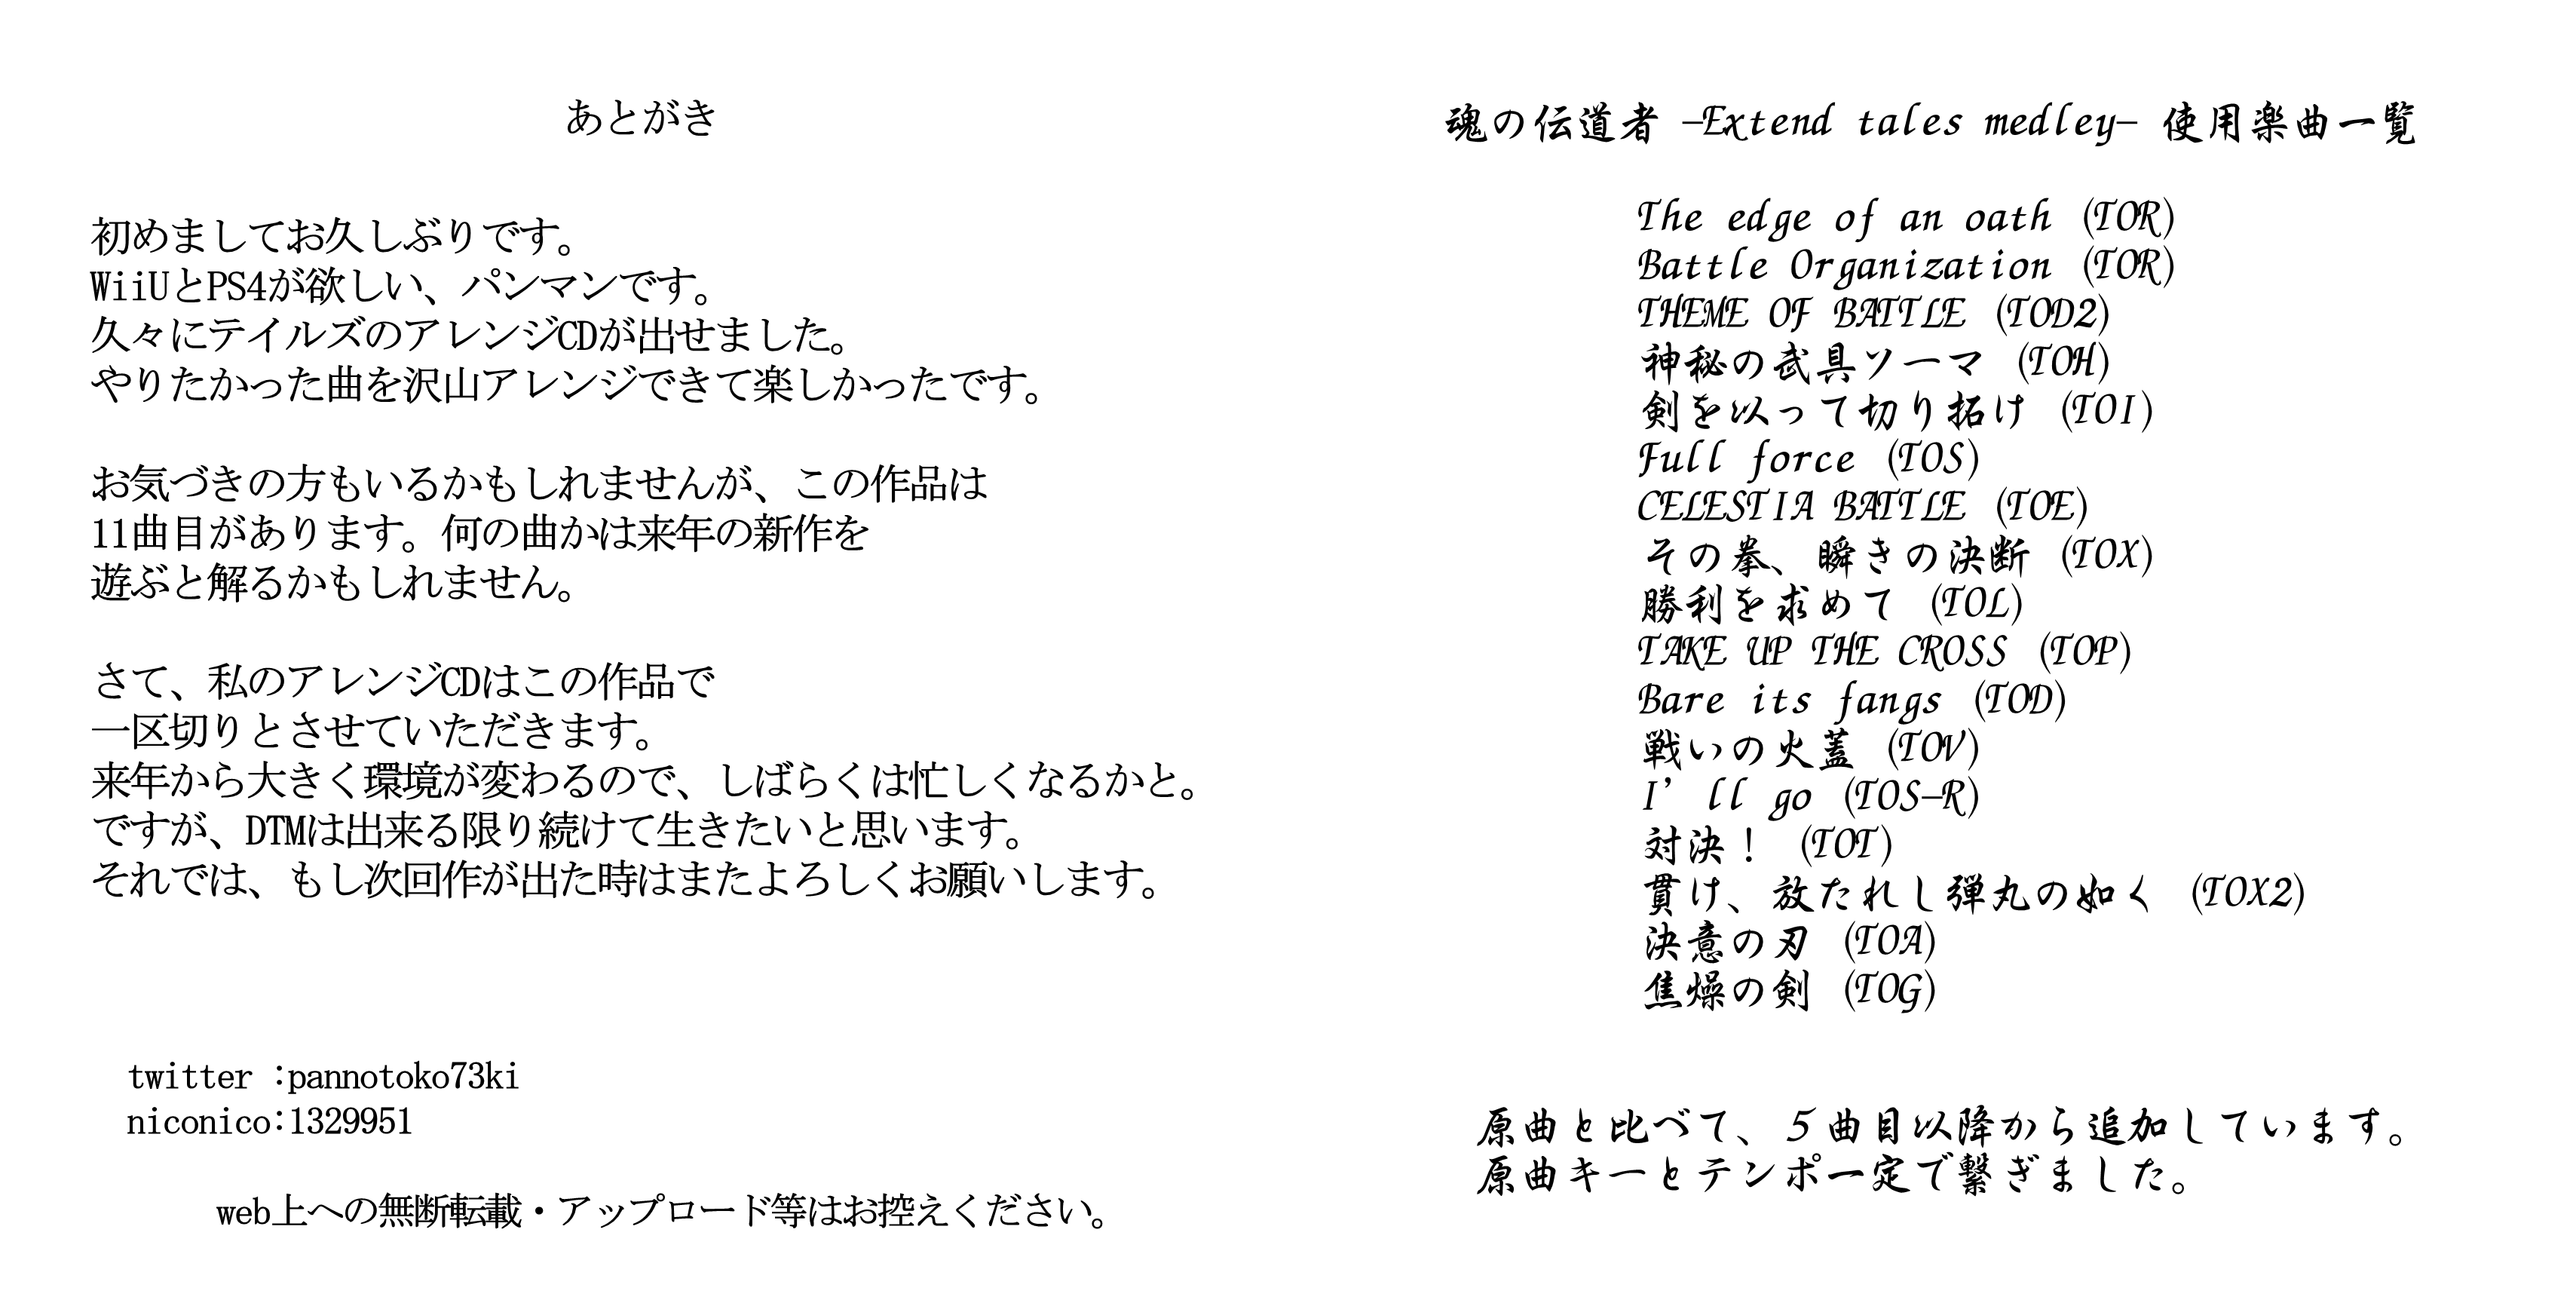 あとがき
初めましてお久しぶりです。
WiiUとPS4が欲しい、パンマンです。
久々にテイルズのアレンジCDが出せました。
やりたかった曲を沢山アレンジできて楽しかったです。
お気づきの方もいるかもしれませんが、この作品は
11曲目があります。何の曲かは来年の新作を
遊ぶと解るかもしれません。
さて、私のアレンジCDはこの作品で
一区切りとさせていただきます。
来年から大きく環境が変わるので、しばらくは忙しくなるかと。
ですが、DTMは出来る限り続けて生きたいと思います。
それでは、もし次回作が出た時はまたよろしくお願いします。
twitter :pannotoko73ki
niconico:1329951
web上への無断転載・アップロード等はお控えください。
魂の伝道者 -Extend tales medley- 使用楽曲一覧
The edge of an oath (TOR)
Battle Organization (TOR)
THEME OF BATTLE (TOD2)
神秘の武具ソーマ (TOH)
剣を以って切り拓け (TOI)
Full force (TOS)
CELESTIA BATTLE (TOE)
その拳、瞬きの決断 (TOX)
勝利を求めて (TOL)
TAKE UP THE CROSS (TOP)
Bare its fangs (TOD)
戦いの火蓋 (TOV)
I’ll go (TOS-R)
対決！ (TOT)
貫け、放たれし弾丸の如く (TOX2)
決意の刃 (TOA)
焦燥の剣 (TOG)
原曲と比べて、５曲目以降から追加しています。
原曲キーとテンポ一定で繋ぎました。